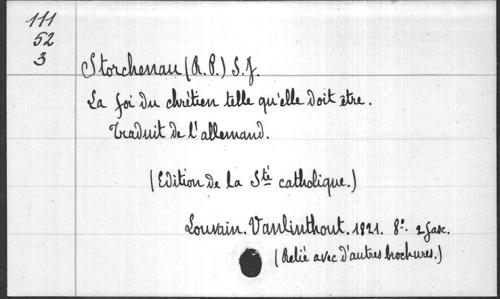 111
52
3
Storchenau (R.P.) S.J.
La foi du chrétien telle qu'elle doit être.
Traduit de l'allemand.
(Edition de la Sté catholique.)
Louvain. Vanlinthout. 1821. 8º. 2 fasc.
(Relié avec d'autres brochures.)